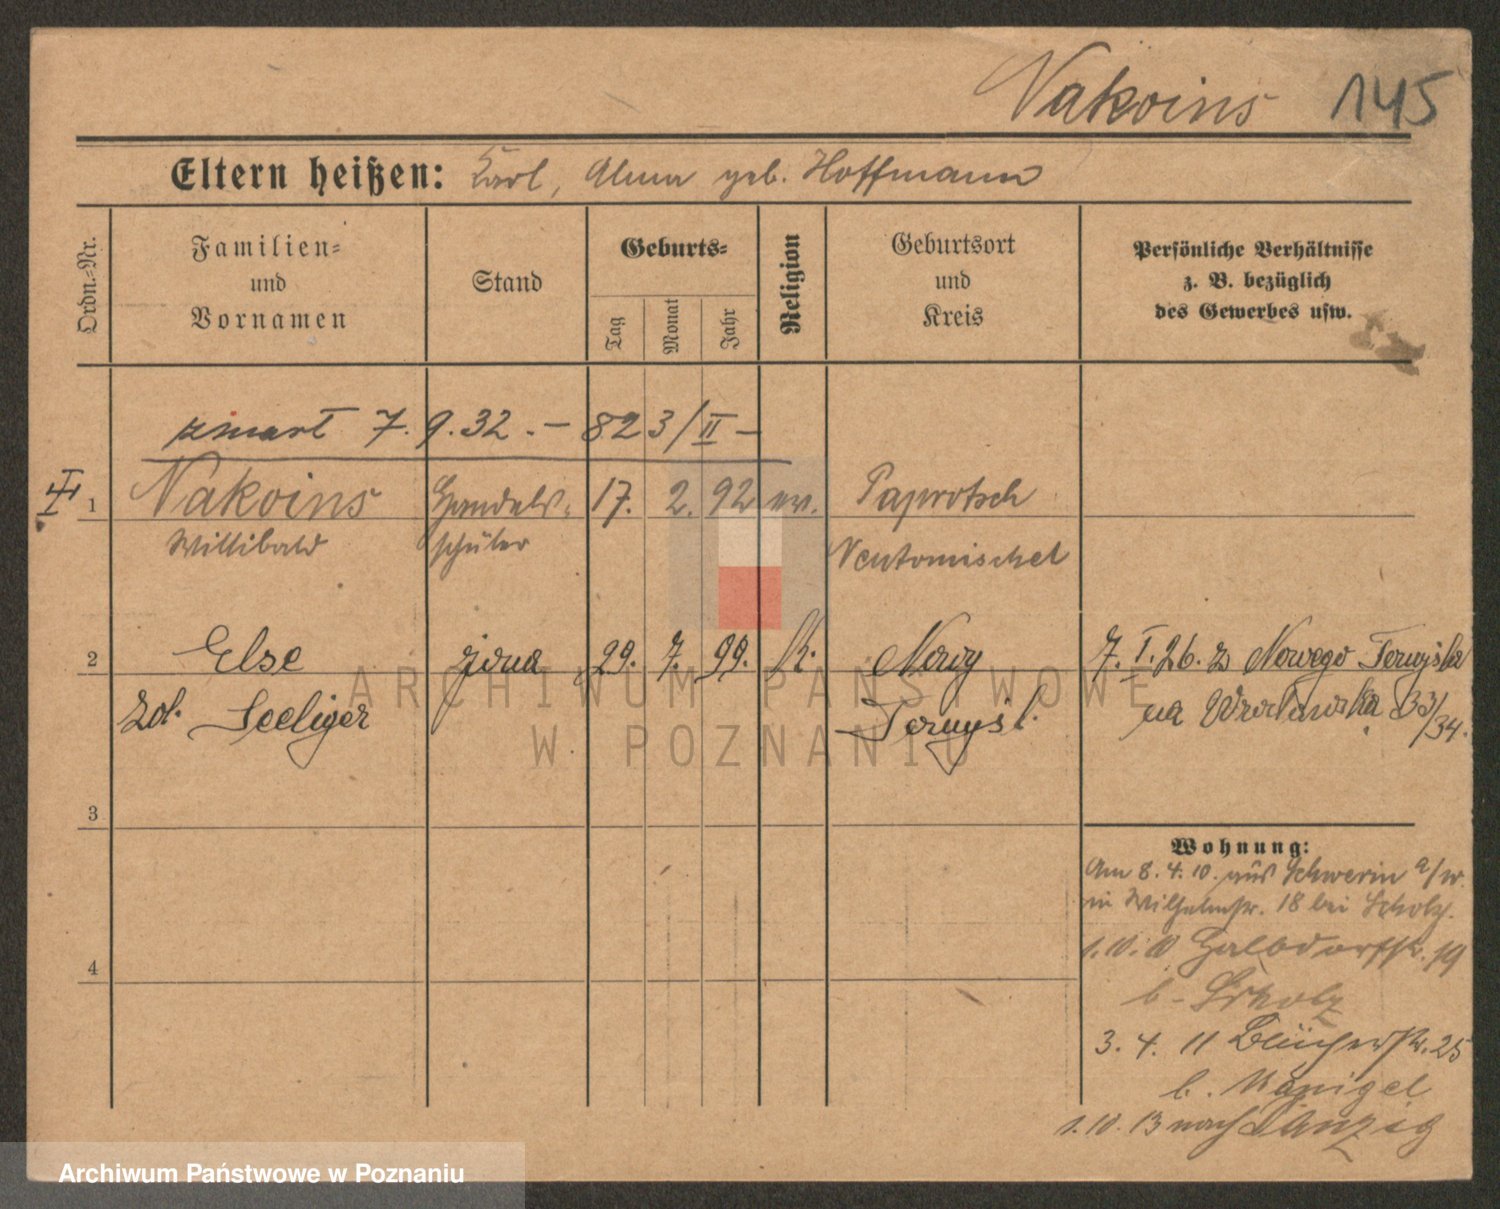 Nakoins 145
Eltern heißen: Karl, Alma geb. Hoffmann
Ordn.-Nr.
Familien-
und
Vornamen
Stand
Geburts-
Tag
Monat
Jahr
Religion
Geburtsort
und
Kreis
Persönliche Verhältnisse
z. B. bezüglich
des Gewerbes usw.
zmarł 7. 9. 32. – 823/II –
I
1 Nakoins Handels- 17. 2. 92 ev. Paprotsch
Willibald schüler Neutomischel
2 Else żona 29. 7. 99. k. Nowy 7. I. 26. z Nowego Tomyśla
zd. Seeliger Tomyśl. na Wrocławska 33/34.
3
4
Wohnung:
Am 8. 4. 10. aus Schwerin a/W.
in Wilhelmstr. 18 bei Scholz.
1. 10. 10 Halbdorfstr. 19
b. Scholz
3. 4. 11 Blücherstr. 25
b.
1. 10. 13 nach Danzig
ARCHIWUM PAŃSTWOWE
W POZNANIU
Archiwum Państwowe w Poznaniu